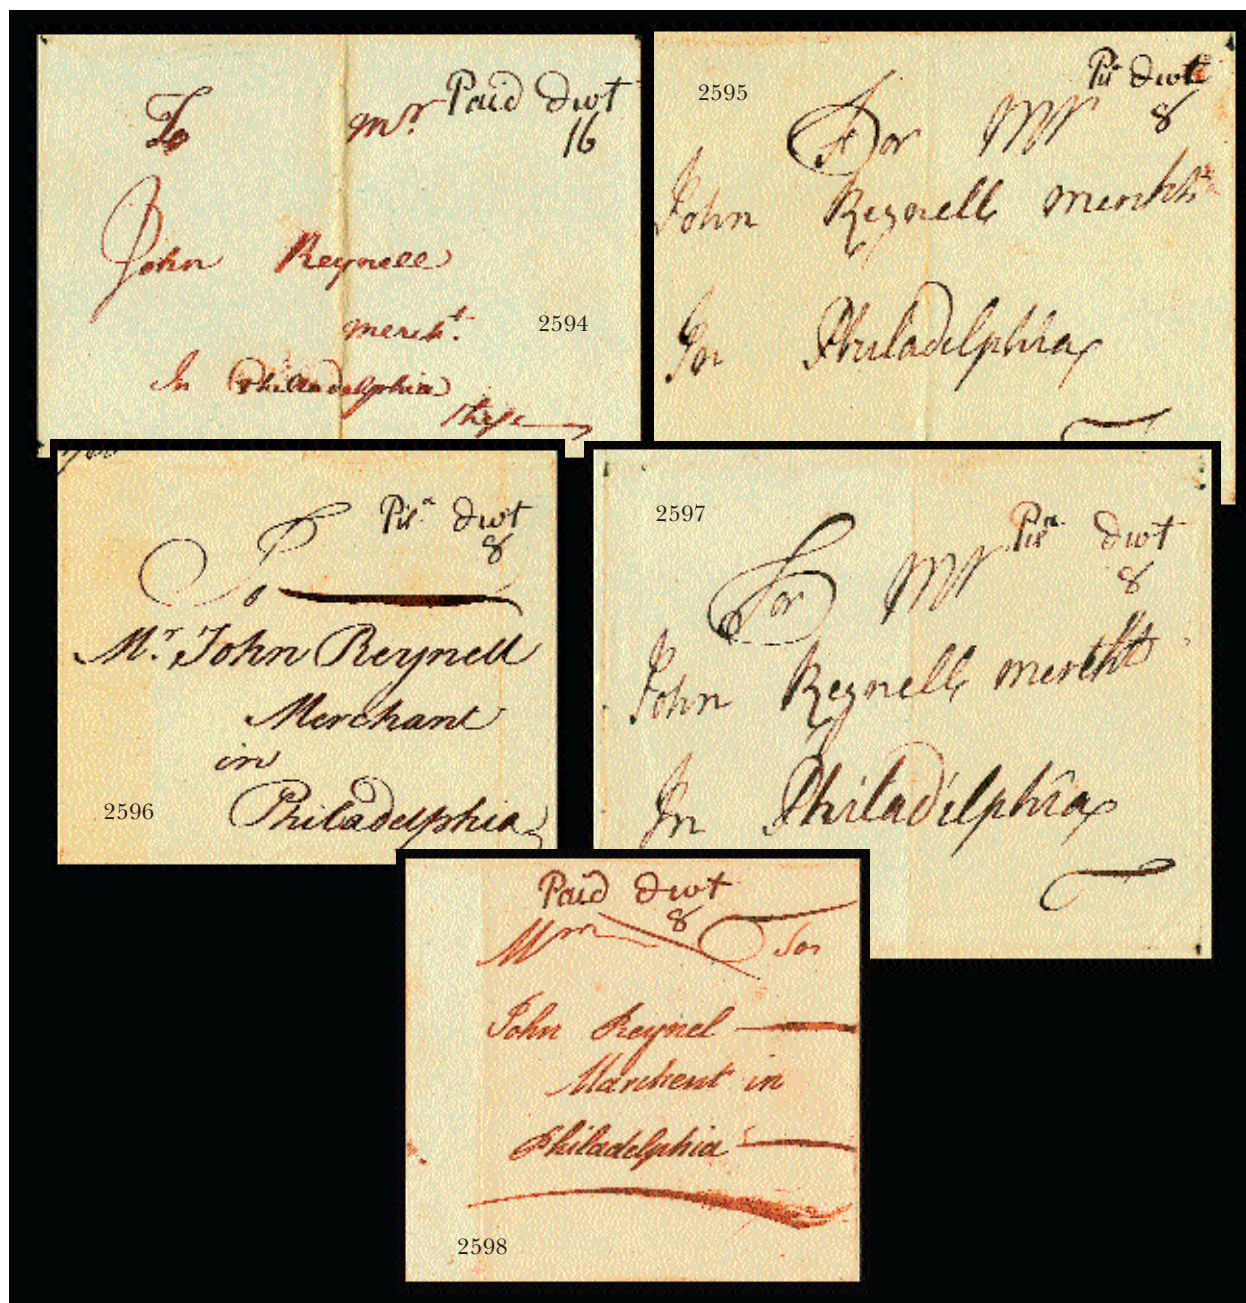 Paid dwt
16
To Mr.
John Reynell
mercht.
2594
In Philladelphia
These
2595
Pd dwt
8
For Mr
John Reynell merchtt
In Philadelphia
Pd. dwt
8
To
Mr. John Reynell
Merchant
in
2596
Philadelphia
2597
Pd. dwt
8
For Mr
John Reynell mercht
In Philadelphia
Paid dwt
8
For
John Reynel
Marchent in
Philadelphia
2598